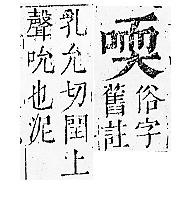 俗字
舊註
乳允切閏上
聲吮也泥